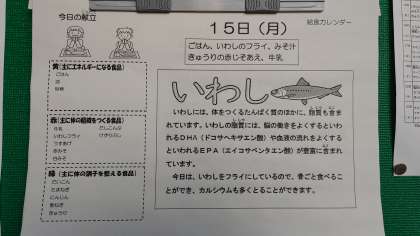 今日の献立
15日(月)
給食カレンダー
ごはん、いわしのフライ、みそ汁
きゅうりの赤じそあえ、牛乳
黄(主にエネルギーになる食品)
ごはん
油
砂糖
赤(主に体の組織をつくる食品)
牛乳 だしこんぶ
いわしフライ けずりぶし
うすあげ
赤みそ
白みそ
緑(主に体の調子を整える食品)
だいこん
たまねぎ
にんじん
青ねぎ
きゅうり
いわし
いわしには、体をつくるたんぱく質のほかに、脂質も含ま
れています。いわしの脂質には、脳の働きをよくするといわ
れるDHA(ドコサヘキサエン酸)や血液の流れをよくする
といわれるEPA(エイコサペンタエン酸)が豊富に含まれ
ています。
今日は、いわしをフライにしているので、骨ごと食べるこ
とができ、カルシウムも多くとることができます。